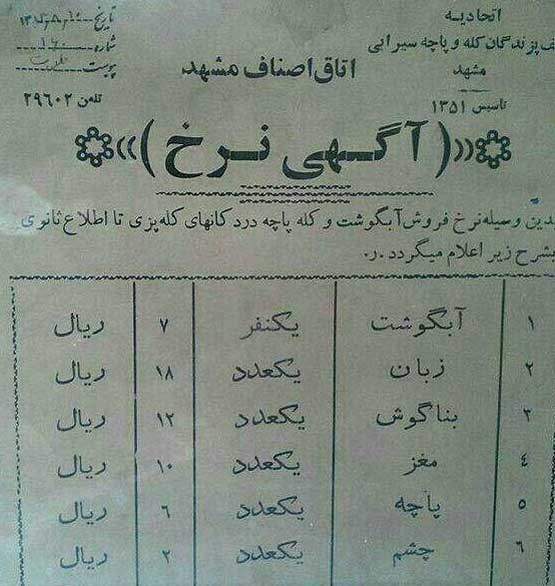 اتحادیه
پزندگان کله و پاچه سیرابی
مشهد
تاسیس ۱۳۵۱
اتاق اصناف مشهد
تاریخ
شماره
پیوست
تلفن ۲۹۶۰۲
(آگهی نرخ)
بدین وسیله نرخ فروش آبگوشت و کله پاچه در دکانهای کله‌پزی تا اطلاع ثانوی
بشرح زیر اعلام میگردد.ر.
۱ آبگوشت یکنفر ۷ ریال
۲ زبان یکعدد ۱۸ ریال
۳ بناگوش یکعدد ۱۲ ریال
۴ مغز یکعدد ۱۰ ریال
۵ پاچه یکعدد ۶ ریال
۶ چشم یکعدد ۲ ریال